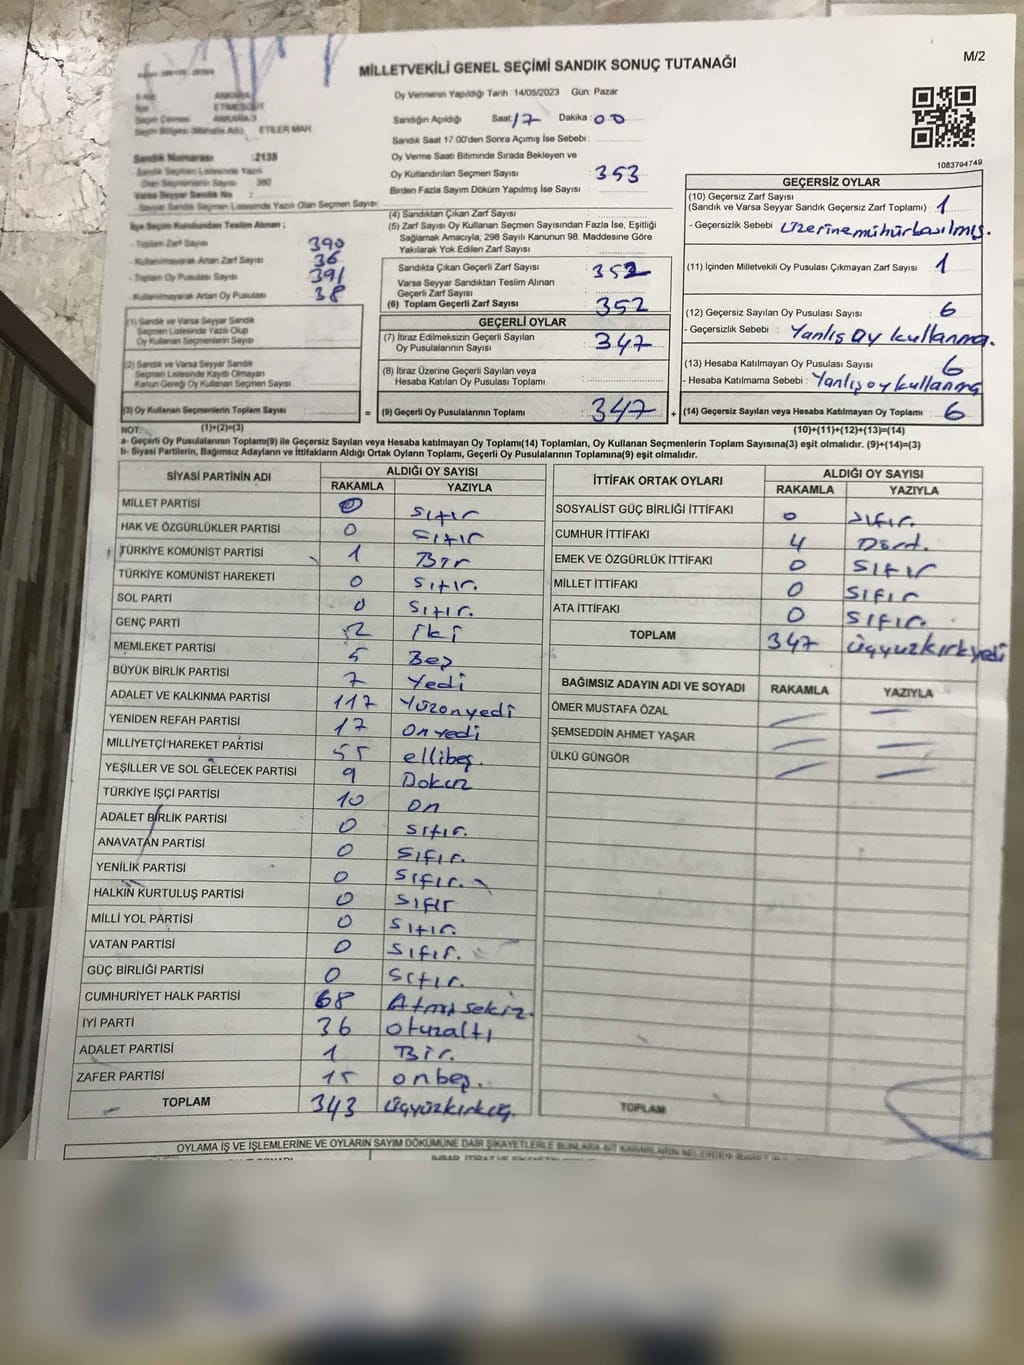 MİLLETVEKİLİ GENEL SEÇİMİ SANDIK SONUÇ TUTANAĞI
M/2
ANKARA
ETİMESGUT
ANKARA-3
ETİLER MAH.
Sandık Numarası :2138
Sandık Seçmen Listesinde Yazılı
Olan Seçmenlerin Sayısı 380
Varsa Seyyar Sandık No :
Seyyar Sandık Seçmen Listesinde Yazılı Olan Seçmen Sayısı:
Oy Vermenin Yapıldığı Tarih 14/05/2023 Gün: Pazar
Sandığın Açıldığı Saat: 17 Dakika: 00
Sandık Saat 17.00'den Sonra Açılmış İse Sebebi:
Oy Verme Saati Bitiminde Sırada Bekleyen ve
Oy Kullandırılan Seçmen Sayısı : 353
Birden Fazla Sayım Döküm Yapılmış İse Sayısı :
1083794749
İlçe Seçim Kurulundan Teslim Alınan ;
- Toplam Zarf Sayısı 390
- Kullanılmayarak Artan Zarf Sayısı 36
- Toplam Oy Pusulası Sayısı 391
- Kullanılmayarak Artan Oy Pusulası 38
(1) Sandık ve Varsa Seyyar Sandık
Seçmen Listesinde Yazılı Olup
Oy Kullanan Seçmenlerin Sayısı
(2) Sandık ve Varsa Seyyar Sandık
Seçmen Listesinde Kaydı Olmayan
Kanun Gereği Oy Kullanan Seçmen Sayısı
(3) Oy Kullanan Seçmenlerin Toplam Sayısı =
(1)+(2)=(3)
(4) Sandıktan Çıkan Zarf Sayısı
(5) Zarf Sayısı Oy Kullanan Seçmen Sayısından Fazla İse, Eşitliği
Sağlamak Amacıyla, 298 Sayılı Kanunun 98. Maddesine Göre
Yakılarak Yok Edilen Zarf Sayısı
Sandıkta Çıkan Geçerli Zarf Sayısı : 352
Varsa Seyyar Sandıktan Teslim Alınan
Geçerli Zarf Sayısı
(6) Toplam Geçerli Zarf Sayısı : 352
GEÇERLİ OYLAR
(7) İtiraz Edilmeksizin Geçerli Sayılan
Oy Pusulalarının Sayısı : 347
(8) İtiraz Üzerine Geçerli Sayılan veya
Hesaba Katılan Oy Pusulası Toplamı
(9) Geçerli Oy Pusulalarının Toplamı : 347 +
GEÇERSİZ OYLAR
(10) Geçersiz Zarf Sayısı
(Sandık ve Varsa Seyyar Sandık Geçersiz Zarf Toplamı) : 1
- Geçersizlik Sebebi : Üzerine mühür basılmış.
(11) İçinden Milletvekili Oy Pusulası Çıkmayan Zarf Sayısı : 1
(12) Geçersiz Sayılan Oy Pusulası Sayısı : 6
- Geçersizlik Sebebi : Yanlış oy kullanma.
(13) Hesaba Katılmayan Oy Pusulası Sayısı : 6
- Hesaba Katılmama Sebebi : Yanlış oy kullanma
(14) Geçersiz Sayılan veya Hesaba Katılmayan Oy Toplamı : 6
(10)+(11)+(12)+(13)=(14)
NOT:
a- Geçerli Oy Pusulalarının Toplamı(9) ile Geçersiz Sayılan veya Hesaba katılmayan Oy Toplamı(14) Toplamları, Oy Kullanan Seçmenlerin Toplam Sayısına(3) eşit olmalıdır. (9)+(14)=(3)
b- Siyasi Partilerin, Bağımsız Adayların ve İttifakların Aldığı Ortak Oyların Toplamı, Geçerli Oy Pusulalarının Toplamına(9) eşit olmalıdır.
SİYASİ PARTİNİN ADI ALDIĞI OY SAYISI
RAKAMLA YAZIYLA
MİLLET PARTİSİ 0 Sıfır
HAK VE ÖZGÜRLÜKLER PARTİSİ 0 Sıfır
TÜRKİYE KOMÜNİST PARTİSİ 1 Bir
TÜRKİYE KOMÜNİST HAREKETİ 0 Sıfır.
SOL PARTİ 0 Sıfır.
GENÇ PARTİ 2 iki
MEMLEKET PARTİSİ 5 Beş
BÜYÜK BİRLİK PARTİSİ 7 Yedi
ADALET VE KALKINMA PARTİSİ 117 Yüzonyedi
YENİDEN REFAH PARTİSİ 17 Onyedi
MİLLİYETÇİ HAREKET PARTİSİ 55 ellibeş.
YEŞİLLER VE SOL GELECEK PARTİSİ 9 Dokuz
TÜRKİYE İŞÇİ PARTİSİ 10 on
ADALET BİRLİK PARTİSİ 0 Sıfır.
ANAVATAN PARTİSİ 0 Sıfır.
YENİLİK PARTİSİ 0 Sıfır.
HALKIN KURTULUŞ PARTİSİ 0 Sıfır
MİLLİ YOL PARTİSİ 0 Sıfır.
VATAN PARTİSİ 0 Sıfır.
GÜÇ BİRLİĞİ PARTİSİ 0 Sıfır.
CUMHURİYET HALK PARTİSİ 68 Atmışsekiz.
İYİ PARTİ 36 otuzaltı
ADALET PARTİSİ 1 Bir.
ZAFER PARTİSİ 15 onbeş.
TOPLAM 343 üçyüzkırküç.
İTTİFAK ORTAK OYLARI ALDIĞI OY SAYISI
RAKAMLA YAZIYLA
SOSYALİST GÜÇ BİRLİĞİ İTTİFAKI 0 Sıfır.
CUMHUR İTTİFAKI 4 Dört.
EMEK VE ÖZGÜRLÜK İTTİFAKI 0 Sıfır
MİLLET İTTİFAKI 0 Sıfır
ATA İTTİFAKI 0 Sıfır.
TOPLAM 347 üçyüzkırkyedi
BAĞIMSIZ ADAYIN ADI VE SOYADI RAKAMLA YAZIYLA
ÖMER MUSTAFA ÖZAL
ŞEMSEDDİN AHMET YAŞAR
ÜLKÜ GÜNGÖR
TOPLAM
OYLAMA İŞ VE İŞLEMLERİNE VE OYLARIN SAYIM DÖKÜMÜNE DAİR ŞİKAYETLERLE BUNLARA AİT KARARLARIN